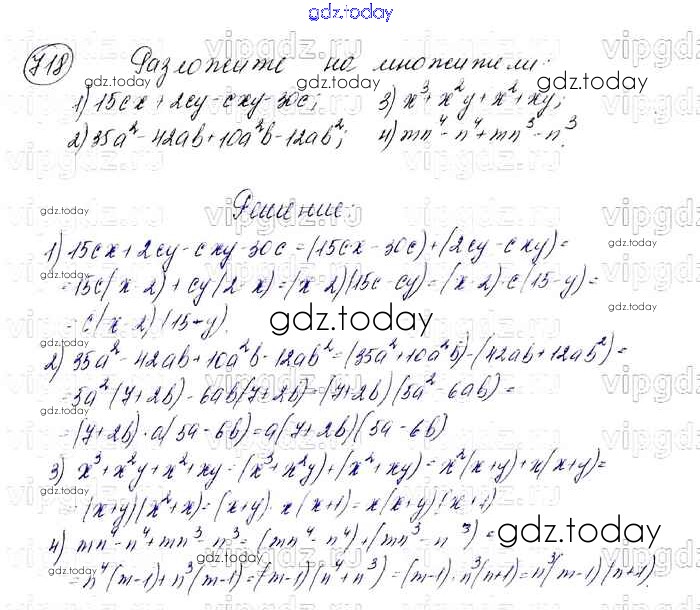 gdz.today
718 Разложите на множители:
1) 15cx + 2cy - cxy - 30c; 3) x³ + x²y + x² + xy;
2) 35a² - 42ab + 10a²b - 12ab²; 4) mn⁴ - n⁴ + mn³ - n³.
Решение:
1) 15cx + 2cy - cxy - 30c = (15cx - 30c) + (2cy - cxy) =
= 15c(x - 2) + cy(2 - x) = (x - 2)(15c - cy) = (x - 2)·c(15 - y) =
= c(x - 2)(15 - y).
2) 35a² - 42ab + 10a²b - 12ab² = (35a² + 10a²b) - (42ab + 12ab²) =
= 5a²(7 + 2b) - 6ab(7 + 2b) = (7 + 2b)(5a² - 6ab) =
= (7 + 2b)·a(5a - 6b) = a(7 + 2b)(5a - 6b)
3) x³ + x²y + x² + xy = (x³ + x²y) + (x² + xy) = x²(x + y) + x(x + y) =
= (x + y)(x² + x) = (x + y)·x(x + 1) = x(x + y)(x + 1)
4) mn⁴ - n⁴ + mn³ - n³ = (mn⁴ - n⁴) + (mn³ - n³) =
= n⁴(m - 1) + n³(m - 1) = (m - 1)(n⁴ + n³) = (m - 1)·n³(n + 1) = n³(m - 1)(n + 1).